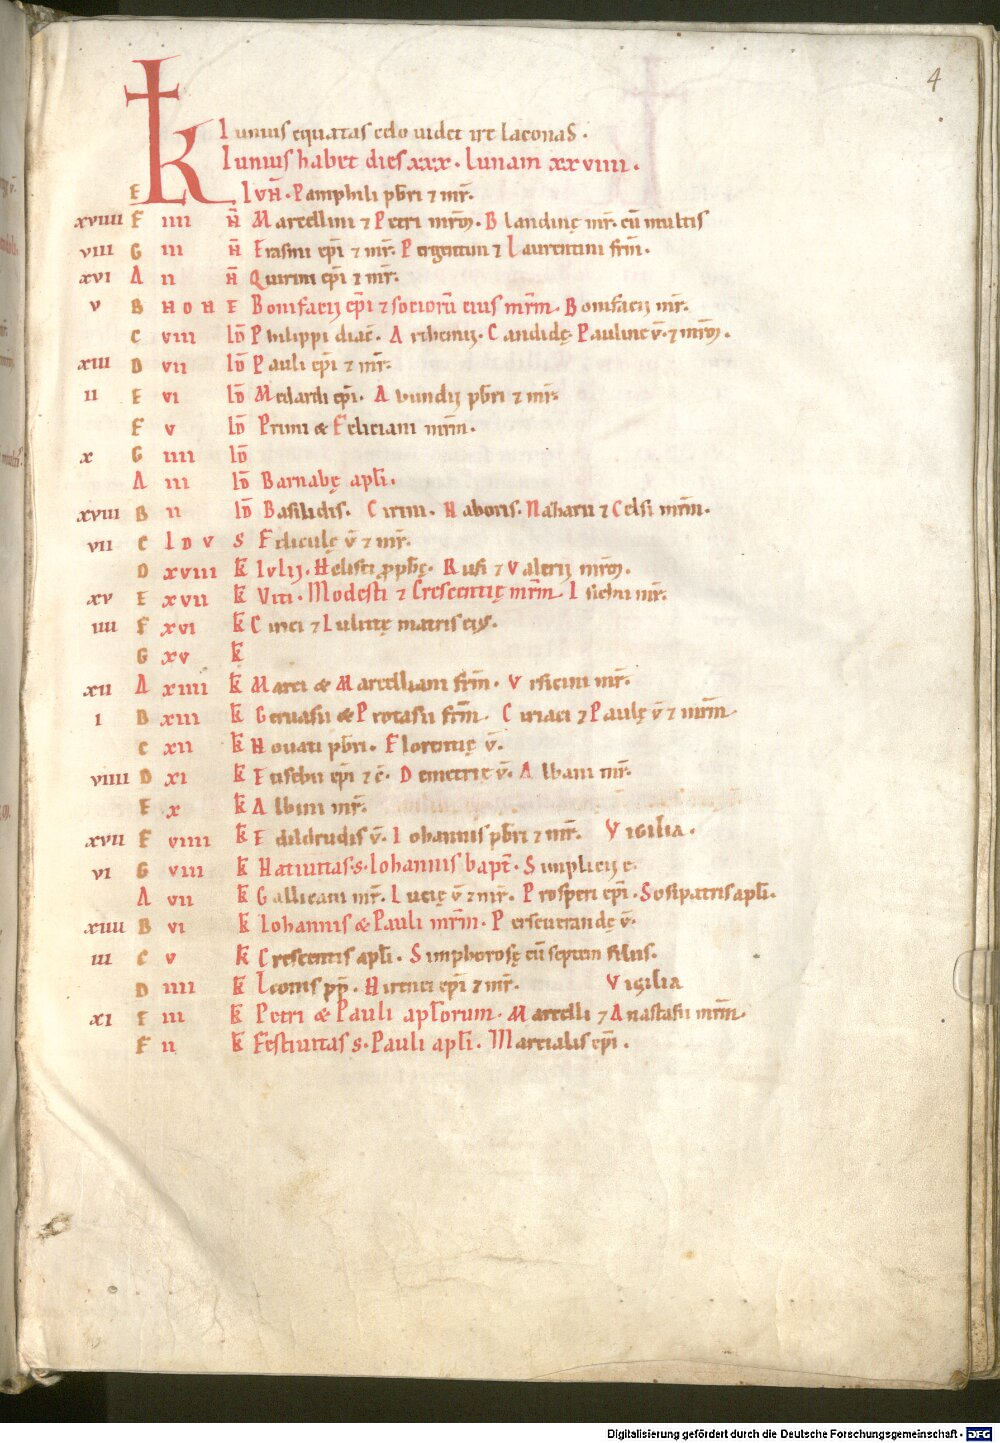 4
Iunius equatas celo uidet ire laconas.
K Iunius habet dies xxx. lunam xxviiii.
E IVN̄. Pamphili pb̄ri ⁊ mr̄.
xviiii F iiii N̄ Marcellini ⁊ Petri mr̄m. Blandinę mr̄. cū multis
viii G iii N̄ Erasmi ep̄i ⁊ mr̄. Pergentini ⁊ Laurentini fr̄m.
xvi A ii N̄ Quirini ep̄i ⁊ mr̄.
v B NON E Bonifacij ep̄i ⁊ socioru̅ eius mr̄m. Bonifacij mr̄.
C viii ID̄ Philippi diac̄. Arthemij. Candidę. Pauline v̄. ⁊ mr̄m.
xiii D vii ID̄ Pauli ep̄i ⁊ mr̄.
ii E vi ID̄ Medardi ep̄i. Abundij pb̄ri ⁊ mr̄.
F v ID̄ Primi & Feliciani mr̄m.
x G iiii ID̄
A iii ID̄ Barnabę apl̄i.
xviii B ii ID̄ Basilidis. Cirini. Naboris. Nazarii ⁊ Celsi mr̄m.
vii C IDV S Feliculę v̄ ⁊ mr̄.
D xviii k̄ Ivlij. Helisei pph̄ę. Rufi ⁊ Valerij mr̄m.
xv E xvii k̄ Viti. Modesti ⁊ Crescentię mr̄m. Isichii mr̄.
iiii F xvi k̄ Cirici ⁊ Iulittę matris eiꝰ.
G xv k̄
xii A xiiii k̄ Marci & Marcelliani fr̄m. Vrsicini mr̄.
i B xiii k̄ Geruasii & Protasii fr̄m. Ciriaci ⁊ Paulę v̄ ⁊ mr̄m
C xii k̄ Nouati pb̄ri. Florentię v̄.
viiii D xi k̄ Eusebii ep̄i ⁊ c̄. Demetrię v̄. Albani mr̄.
E x k̄ Albini mr̄.
xvii F viiii k̄ Edildrudis v̄. Iohannis pb̄ri ⁊ mr̄. Vigilia.
vi G viii k̄ Natiuitas. s. Iohannis bapt̄. Simplicij c.
A vii k̄ Gallicani mr̄. Lucię v̄ ⁊ mr̄. Prosperi ep̄i. Sosipatris apl̄i.
xiiii B vi k̄ Iohannis & Pauli mr̄m. Perseuerandę v̄.
iii C v k̄ Crescentis apl̄i. Simphorosę cū septem filiis.
D iiii k̄ Leonis pp̄. Hirenei ep̄i ⁊ mr̄. Vigilia
xi E iii k̄ Petri & Pauli apl̄orum. Marcelli ⁊ Anastasii mr̄m.
F ii k̄ Festiuitas s. Pauli apl̄i. Martialis ep̄i.
Digitalisierung gefördert durch die Deutsche Forschungsgemeinschaft - DFG